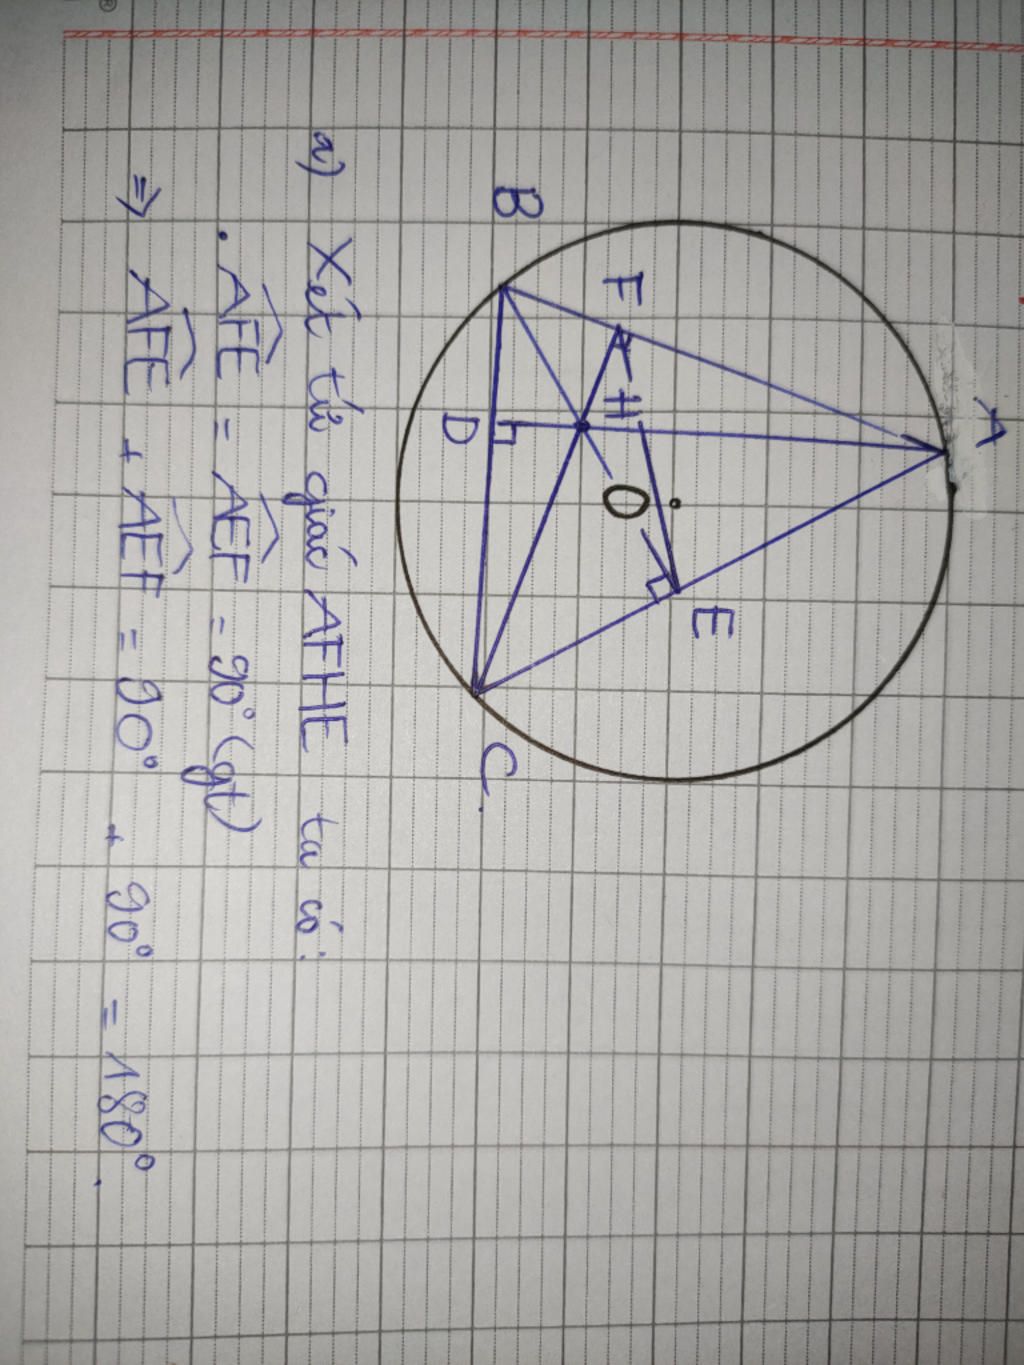 A
F
E
H
O
B
D
C
a) Xét tứ giác AFHE ta có:
. AFE = AEF = 90° (gt)
⇒ AFE + AEF = 90° + 90° = 180°.
®